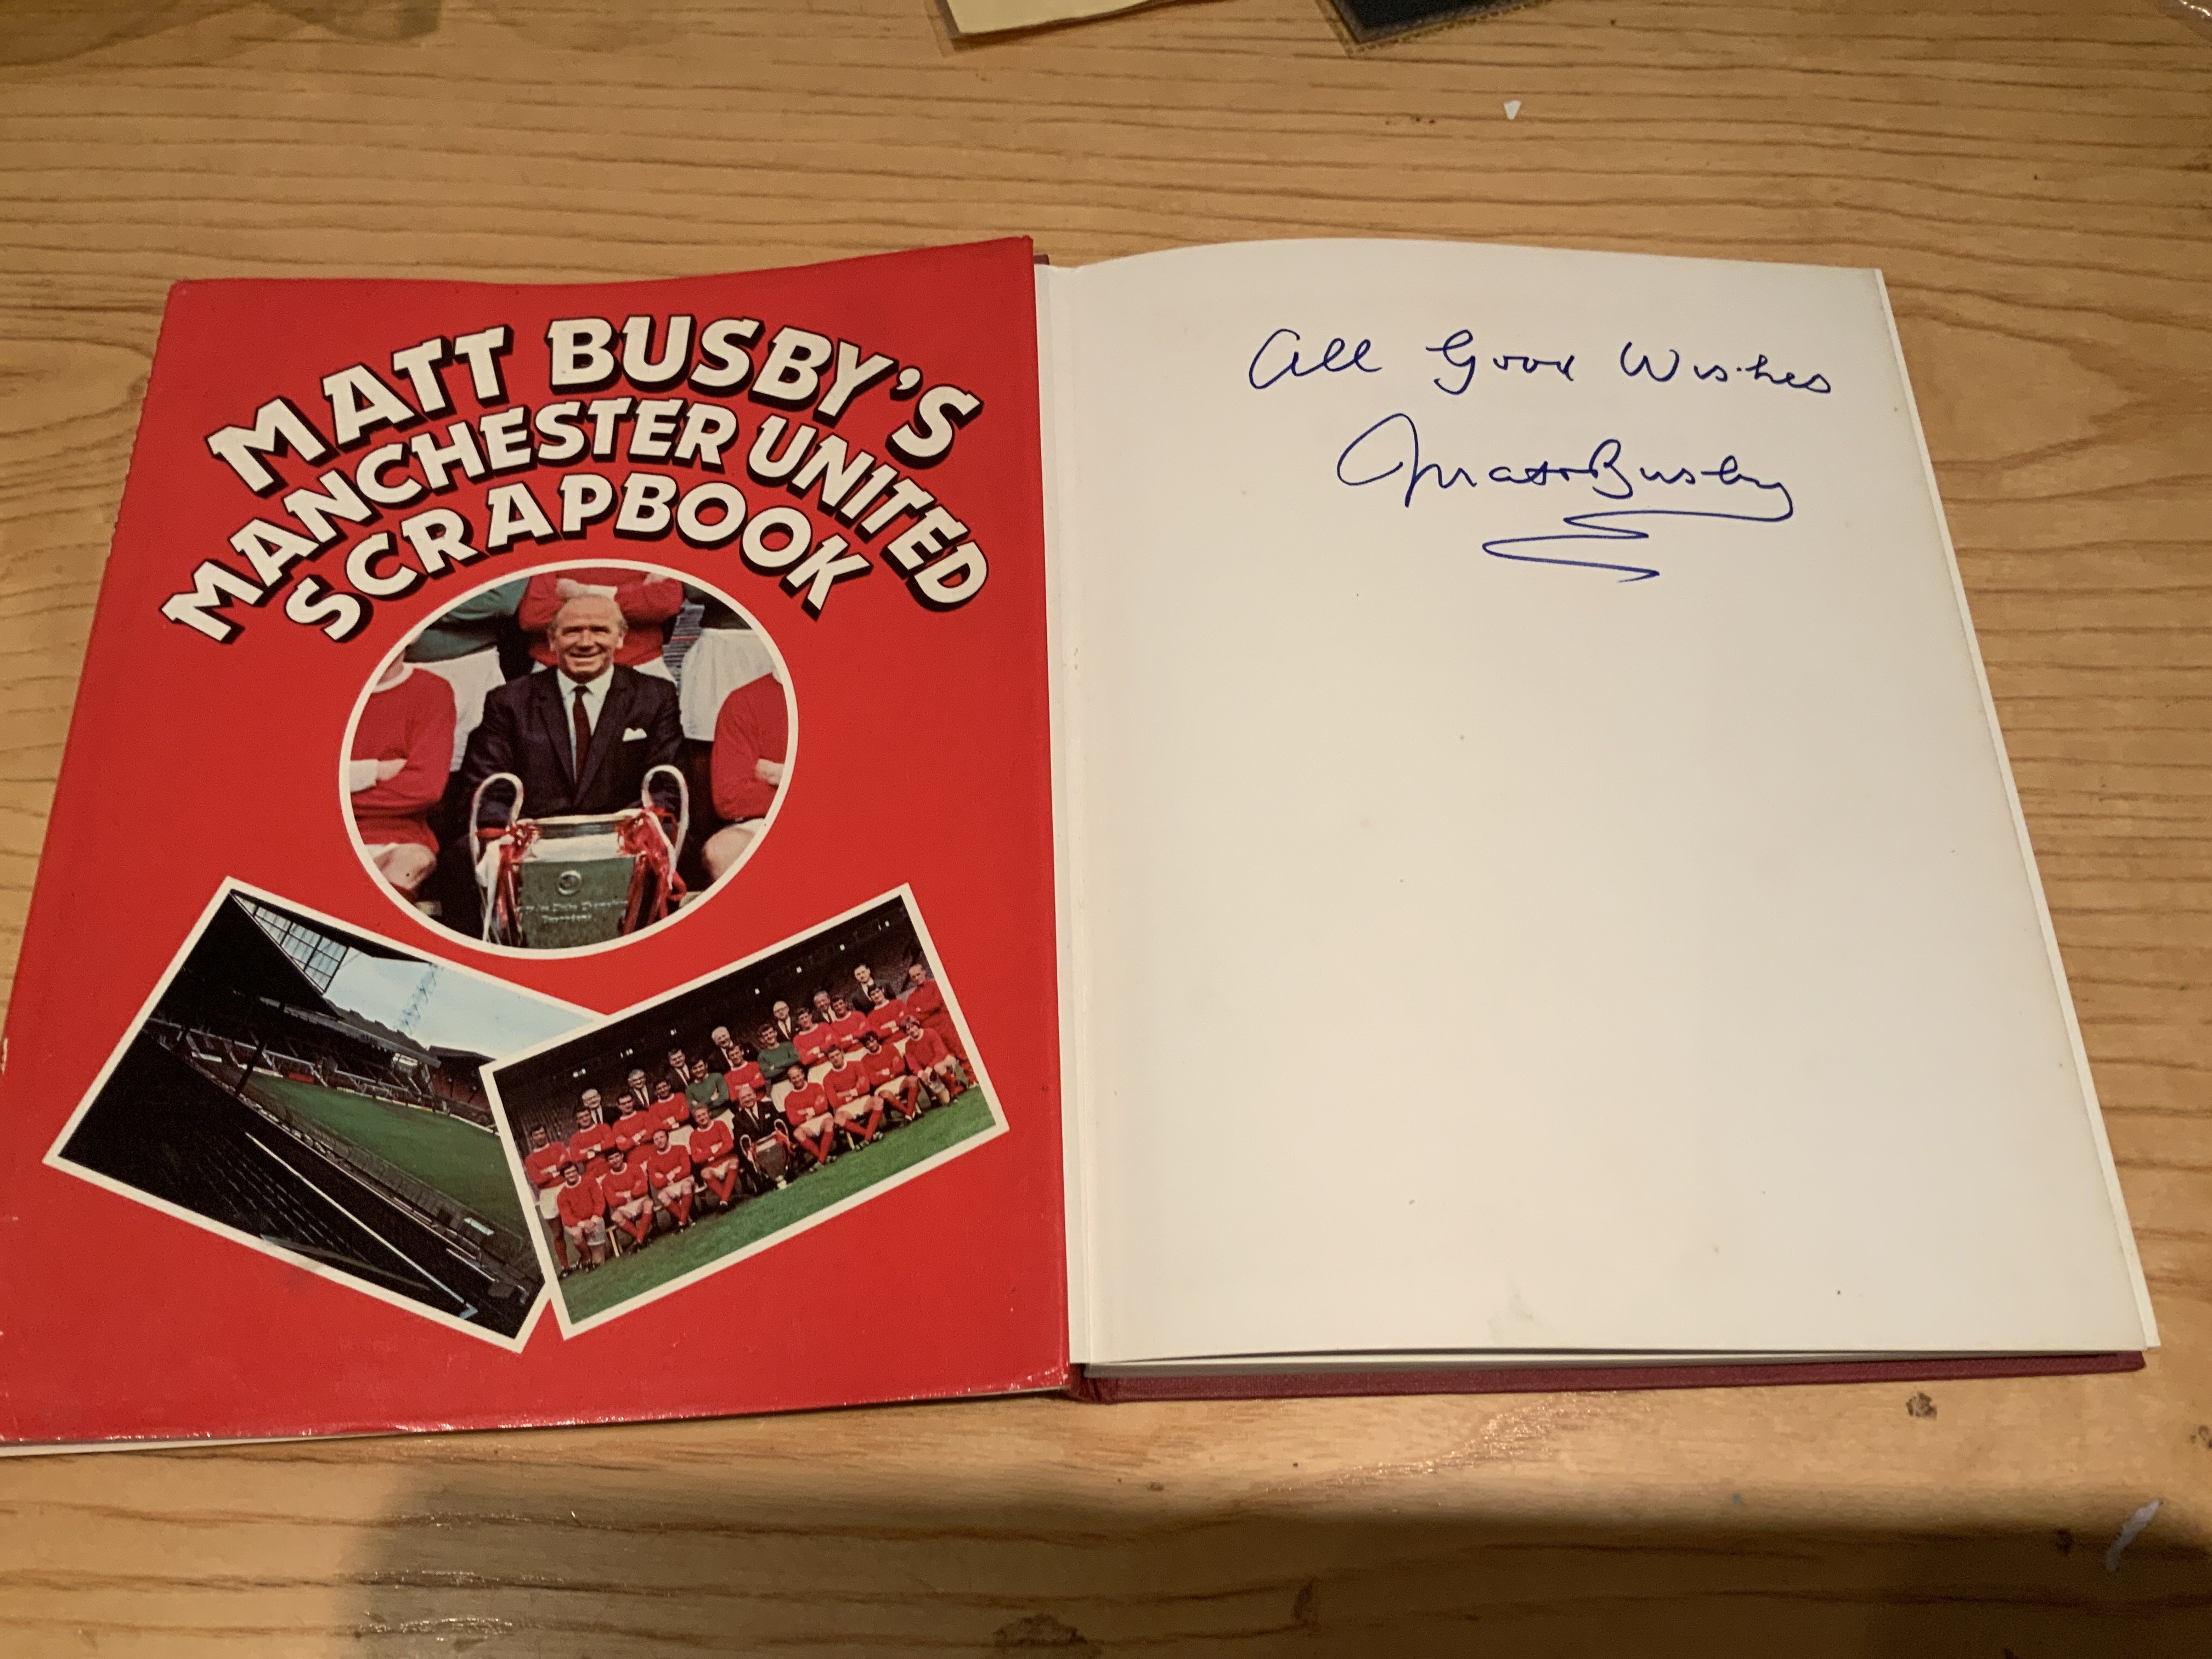 MATT BUSBY'S
MANCHESTER UNITED
SCRAPBOOK
All Good Wishes
Matt Busby